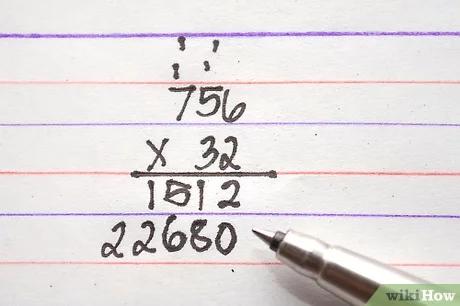 1 1
1 1
756
x 32
1512
22680
wikiHow